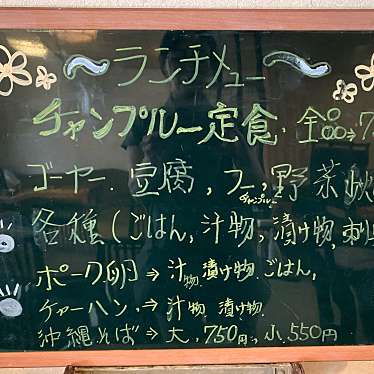 ～ランチメニュー～
チャンプルー定食、全品→7
ゴーヤー、豆腐、フー、野菜
チャンプルー
各種(ごはん,汁物,漬け物,刺
ポーク卵→汁物.漬け物.ごはん,
チャーハン→汁物.漬け物.
沖縄そば→大,750円,小.550円